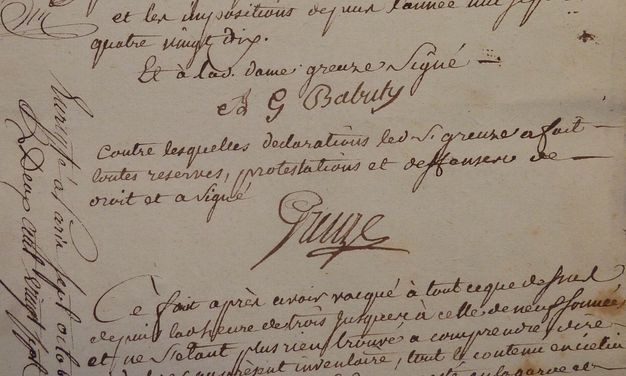 et les impositions depuis l'année mil sept
quatre vingt dix.
Et à lad. dame greuze signé
A G Babuty
Contre lesquelles declarations led. S. greuze a fait
toutes reserves, protestations et deffenses de
droit et a signé
Greuze
Ce fait après avoir vacqué à tout ce que dessus
depuis lad. heure de trois jusques à celle de neuf sonnées
et ne s'etant plus rien trouvé a comprendre, dire
present inventaire, tout le contenu en icelui
la garde et
Enregistré à Paris le
Deux cent vingt